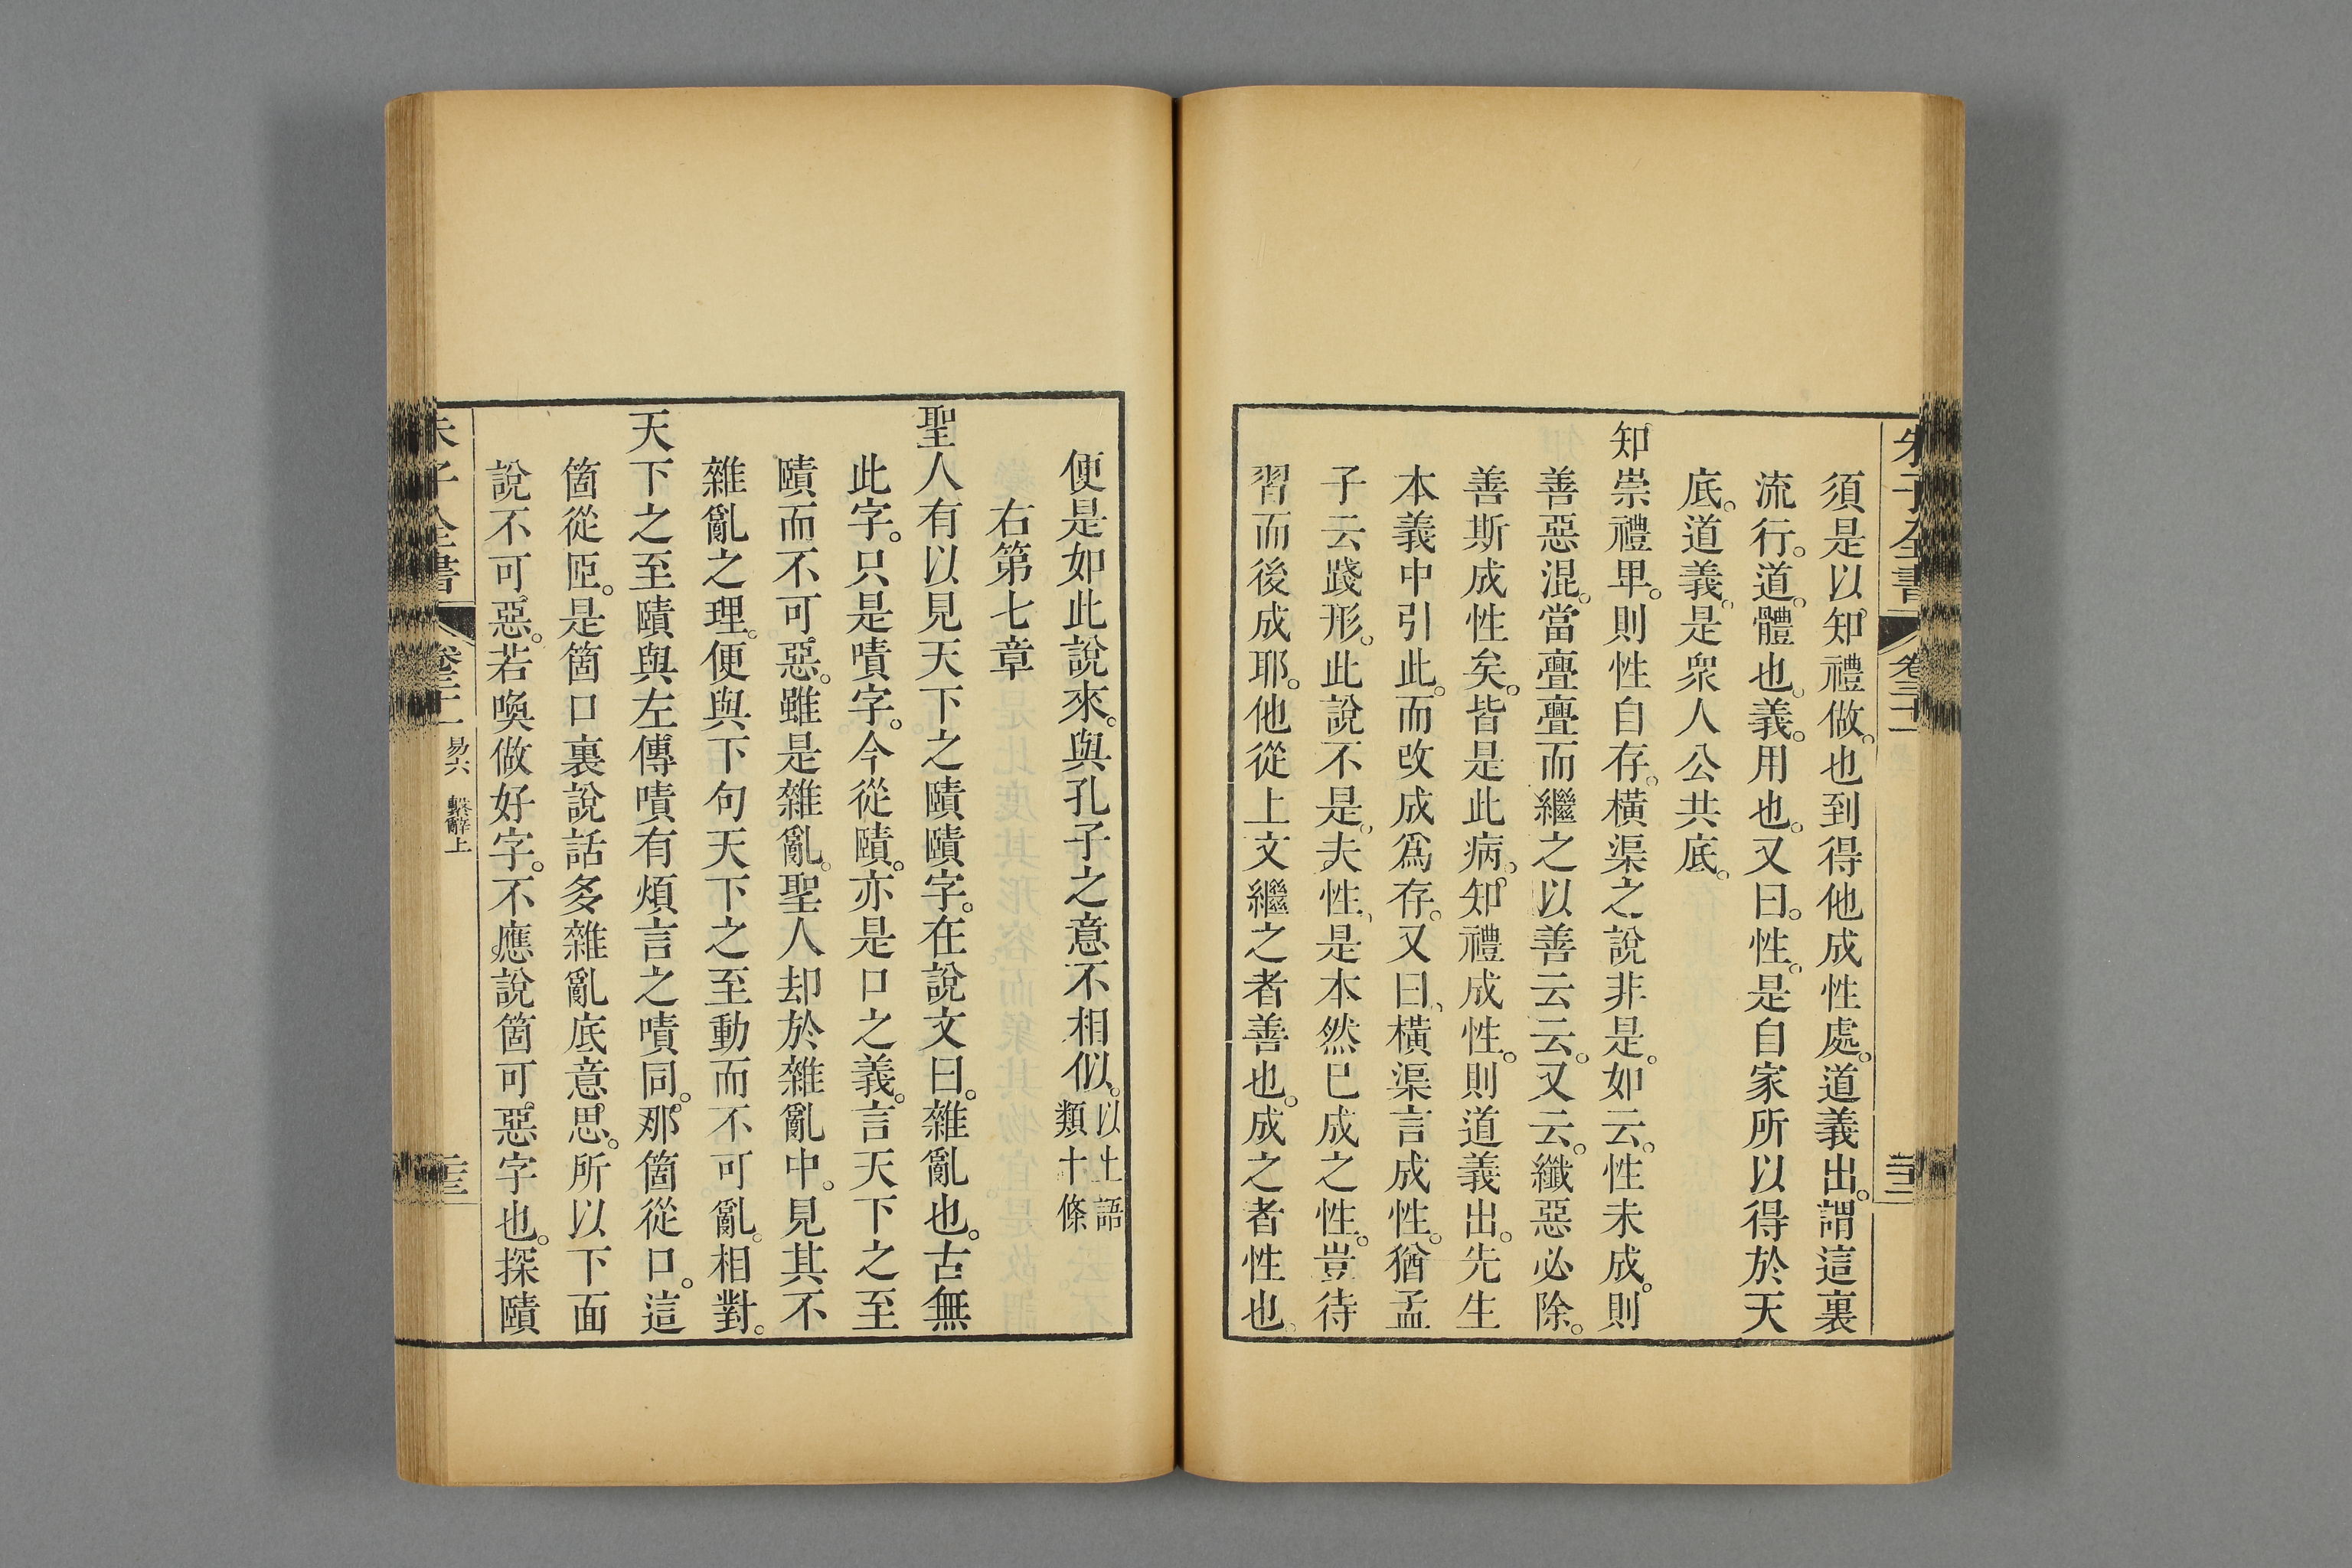 須是以知禮做。也到得他成性處。道義出。謂這裏
流行。道。體也。義。用也。又曰。性。是自家所以得於天
底。道義。是衆人公共底。
知崇禮卑。則性自存。橫渠之說非是。如云。性未成。則
善惡混。當亹亹而繼之以善云云。又云。纖惡必除。
善斯成性矣。皆是此病。知禮成性。則道義出。先生
本義中引此。而改成爲存。又曰、橫渠言成性。猶孟
子云踐形。此說不是。夫性、是本然已成之性。豈待
習而後成耶。他從上文繼之者善也。成之者性也。
便是如此說來。與孔子之意不相似。以上語
類十條
右第七章
聖人有以見天下之賾賾字。在說文曰。雜亂也。古無
此字。只是嘖字。今從賾。亦是口之義。言天下之至
賾而不可惡。雖是雜亂。聖人却於雜亂中。見其不
雜亂之理。便與下句天下之至動而不可亂。相對。
天下之至賾與左傳嘖有煩言之嘖同。那箇從口。這
箇從𦣞。是箇口裏說話多雜亂底意思。所以下面
說不可惡。若喚做好字。不應說箇可惡字也。探賾
朱子全書
易六
繫辭上